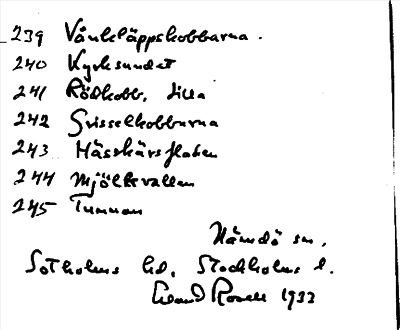 239 Vånkläppskobbarna.
240 Kyrksundet
241 Rödkobb, Lilla
242 Grisselkobbarna
243 Hässkärsflaten
244 Mjölkvallen
245 Tunnan
Nämdö sn,
Sotholms hd, Stockholms l.
1933